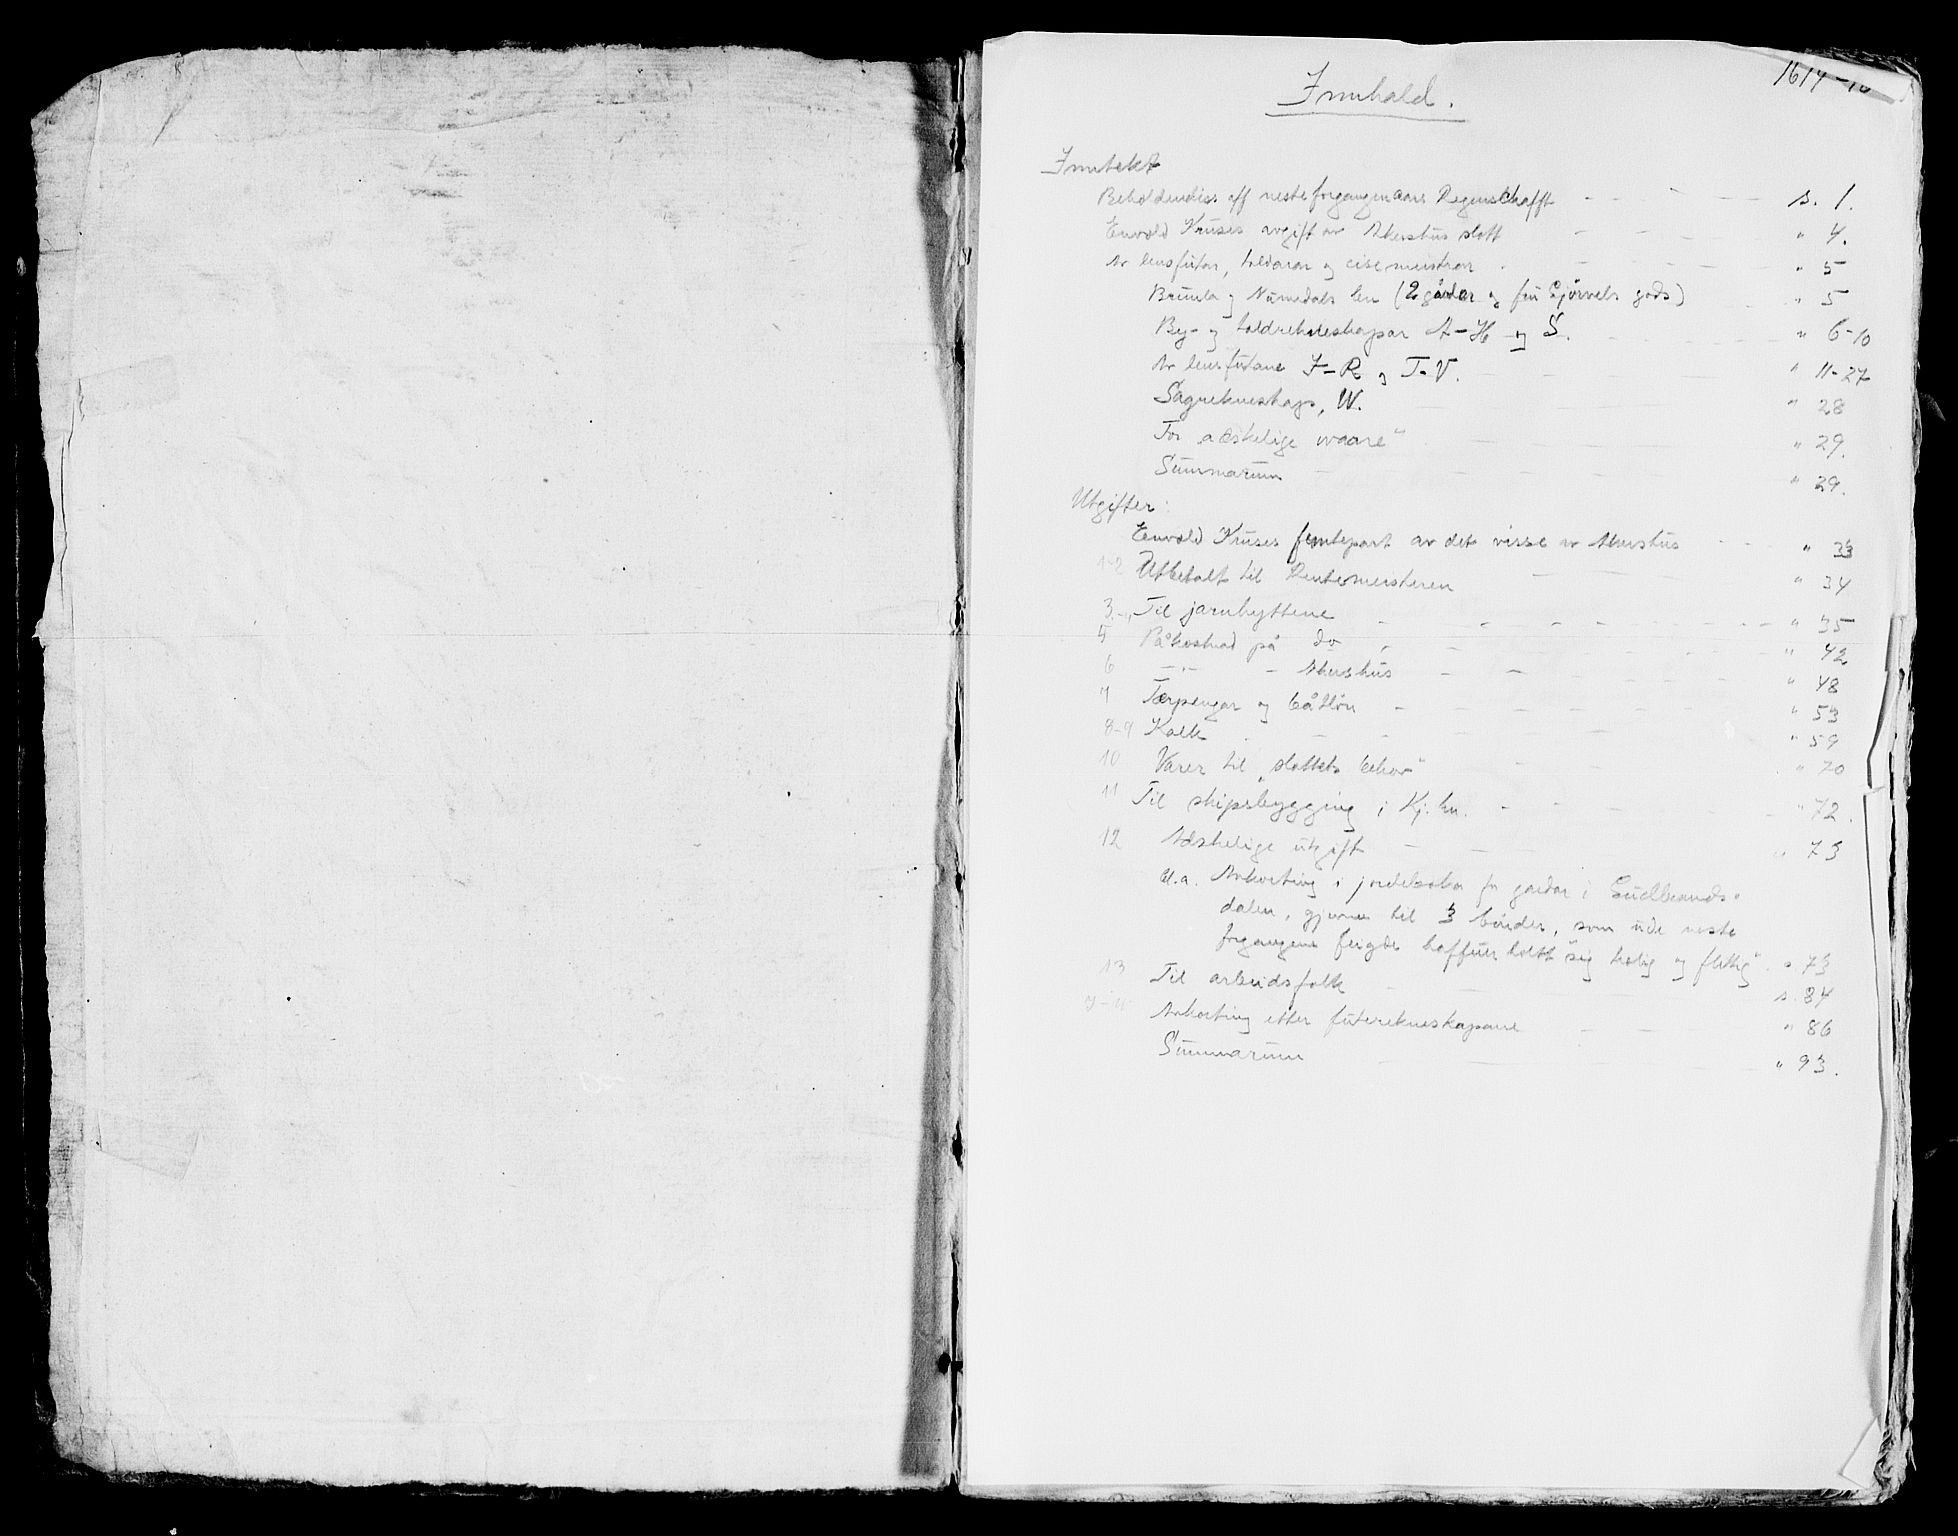 1614 -
Innhald.
Inntekt
Beholdendiss aff neste forgangen aars Regenschafft - - - - s. 1.
Enwold Kruses avgift av Akershus slott - - - " 4.
Av lensfutar, toldarar og cisemeistrar - - - " 5
Brunla og Numedals len (2 gårdar og fru gods) - - " 5
By- og toldrekneskapar A-H og S. - - - " 6-10
Av lensfutane I-R og T-V. - - - " 11-27
Sagrekneskap, W. - - " 28
For adskelige waare" - - " 29.
Summarum - - - " 29.
Utgifter:
Enwold Kruses femtepart av det visse av Akershus - - - " 33
1-2 Utbetalt til Rentemeisteren - - " 34
3- Til jarnhyttene - - - " 35
5 Påkostnad på do - - - " 42
6 - " - - Akershus - - - " 48
7 Tærpengar og båtløn - - - " 53
8-9 Kalk - - - " 59
10 Varer til "slottets behov" - - " 70
11 Til skipsbygging i Kj.hn. - - - " 72.
12 Adskelige utgift - - - " 73
Bl.a. Avkorting i jordeboka for gardar i Gudbrands-
dalen, til 3 bönder, som udi neste
forgangene feigde haffuer holtt sig trolig og flittig". s 73
13 Til arbeidsfolk - - - s. 84
Avkorting etter futerekneskapane - - " 86
Summarum - - - " 93.